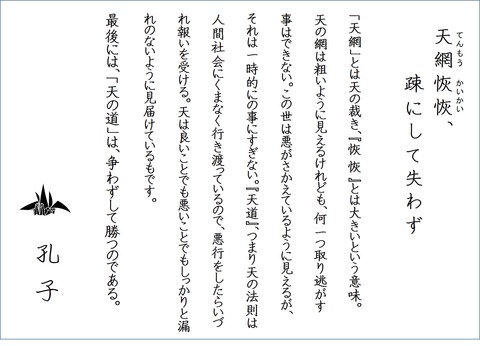 天網恢恢、
てんもう かいかい
疎にして失わず
「天網」とは天の裁き、『恢恢』とは大きいという意味。
天の網は粗いように見えるけれども、何一つ取り逃がす
事はできない。この世は悪がさかえているように見えるが、
それは一時的にの事にすぎない。『天道』、つまり天の法則は
人間社会にくまなく行き渡っているので、悪行をしたらいづ
れ報いを受ける。天は良いことでも悪いことでもしっかりと漏
れのないように見届けているものです。
最後には、「天の道」は、争わずして勝つのである。
孔子